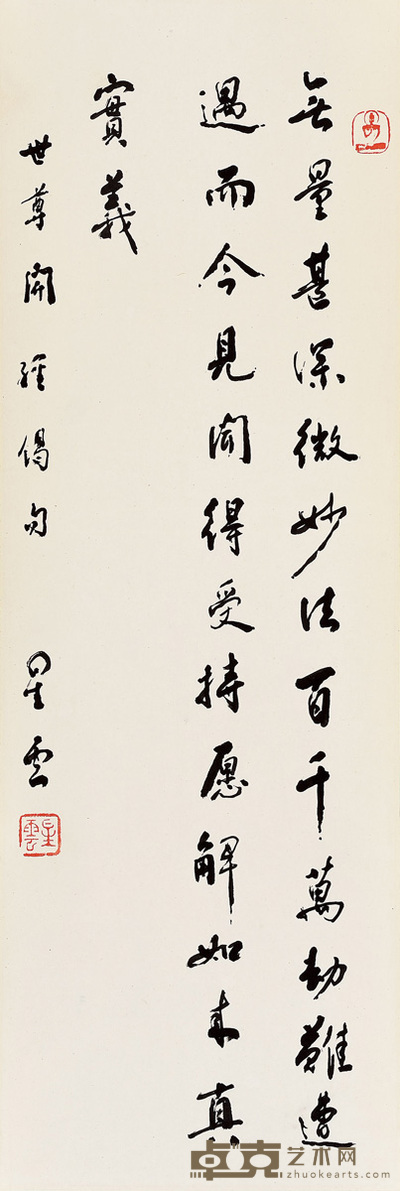 無量甚深微妙法百千萬劫難遭
遇而今見聞得受持愿解如来真
實義
世尊開經偈句 星雲
星雲
卓克艺术网
zhuokearts.com